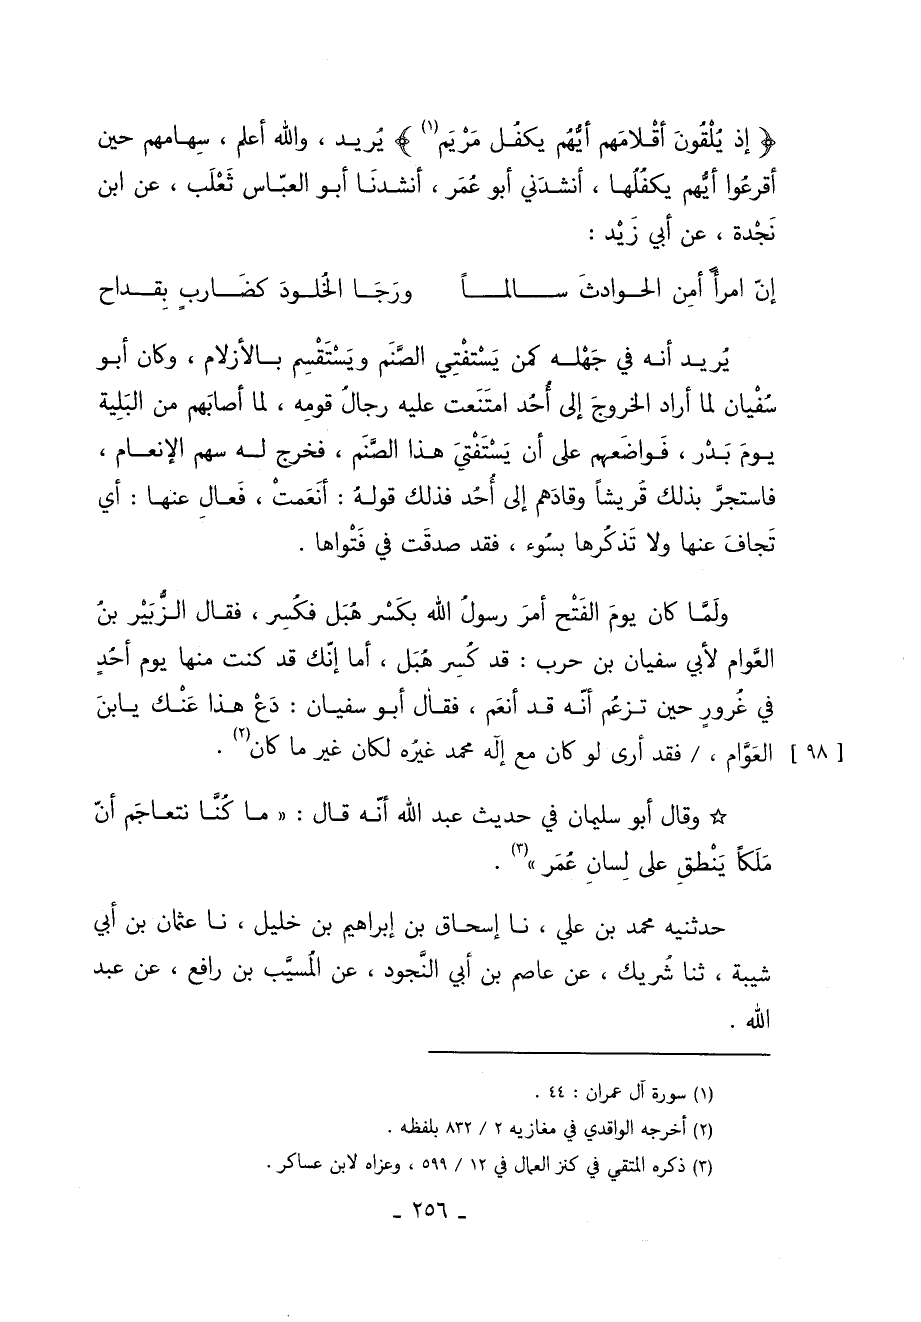 ﴿ إذ يُلْقُونَ أقْلامَهم أيُّهُم يكفُل مَرْيَم(١) ﴾ يُريد ، والله أعلم ، سِهامهم حين
أقرعُوا أيُّهم يكفُلُها ، أنشدَني أبو عُمَر ، أنشدنَا أبو العبّاس ثَعْلَب ، عن ابن
نَجْدة ، عن أبي زَيْد :
إنّ امرأً أمِن الحوادثَ سالماً ورَجَا الخُلودَ كضَاربٍ بقداح
يُريد أنه في جَهْله كمن يَسْتفتِي الصَّنَم ويَسْتَقْسِم بالأزلام ، وكان أبو
سُفْيان لما أراد الخروجَ إلى أُحُد امتَنَعت عليه رجالُ قومِه ، لما أصابَهم من البَلِية
يومَ بَدْر ، فواضَعهم على أن يَسْتَفْتيَ هذا الصَّنم ، فخرج له سهم الإنعام ،
فاستجرَّ بذلك قُريشاً وقادَهم إلى أُحُد فذلك قولهُ : أنَعَمتْ ، فَعال عنها : أي
تَجافَ عنها ولا تَذكُرها بسُوء ، فقد صدقَت في فَتْواها .
ولَمَّا كان يومَ الفَتْح أمرَ رسولُ الله بكَسْر هُبَل فكُسِر ، فقال الزُّبَيْر بنُ
العَّوام لأبي سفيان بن حرب : قد كُسِر هُبَل ، أما إنّك قد كنت منها يوم أحُدٍ
في غُرورٍ حين تزعُم أنّه قد أنعَم ، فقال أبو سفيان : دَعْ هذا عَنْك يابنَ
[ ٩٨ ] العَوَّام ، / فقد أرى لو كان مع إلَه محمد غيرُه لكان غير ما كان(٢) .
☆ وقال أبو سليمان في حديث عبد الله أنّه قال : « ما كُنَّا نتعاجَم أنّ
مَلَكاً يَنْطق على لِسانِ عُمَر »(٣) .
حدثنيه محمد بن علي ، نا إسحاق بن إبراهيم بن خليل ، نا عثمان بن أبي
شيبة ، ثنا شُريك ، عن عاصم بن أبي النَّجود ، عن المُسيَّب بن رافع ، عن عبد
الله .
(١) سورة آل عمران : ٤٤ .
(٢) أخرجه الواقدي في مغازيه ٢ / ٨٣٢ بلفظه .
(٣) ذكره المتقي في كنز العمال في ١٢ / ٥٩٩ ، وعزاه لابن عساكر .
ـ ٢٥٦ ـ